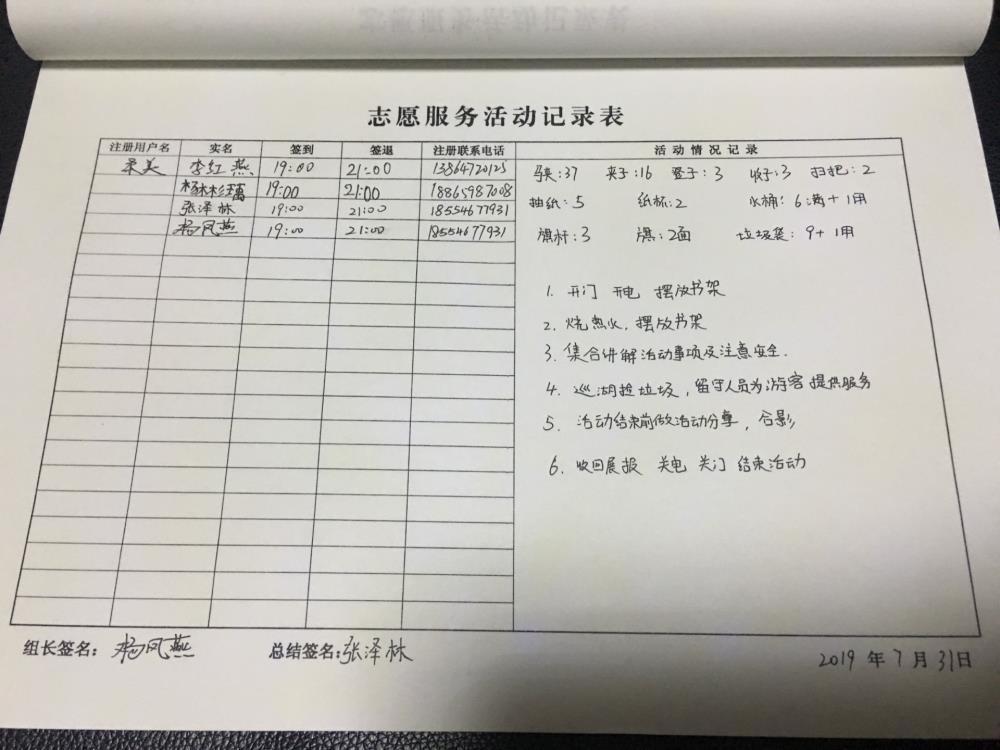 志愿服务活动记录表
注册用户名 实名 签到 签退 注册联系电话 活动情况记录
柔美 李红燕 19:00 21:00 13864720125
杨林杉 19:00 21:00 18865987008
张泽林 19:00 21:00 18554677931
杨凤燕 19:00 21:00 18554677931
马夹:37 夹子:16 凳子:3 收子:3 扫把:2
抽纸:5 纸杯:2 水桶:6满+1用
旗杆:3 旗:2面 垃圾袋:9+1用
1. 开门 开电 摆放书架
2. 烧热水,摆放书架
3. 集合讲解活动事项及注意安全.
4. 巡湖捡垃圾,留守人员为游客提供服务
5. 活动结束前做活动分享,合影
6. 收回展报 关电 关门 结束活动
组长签名:杨凤燕 总结签名:张泽林 2019年7月31日